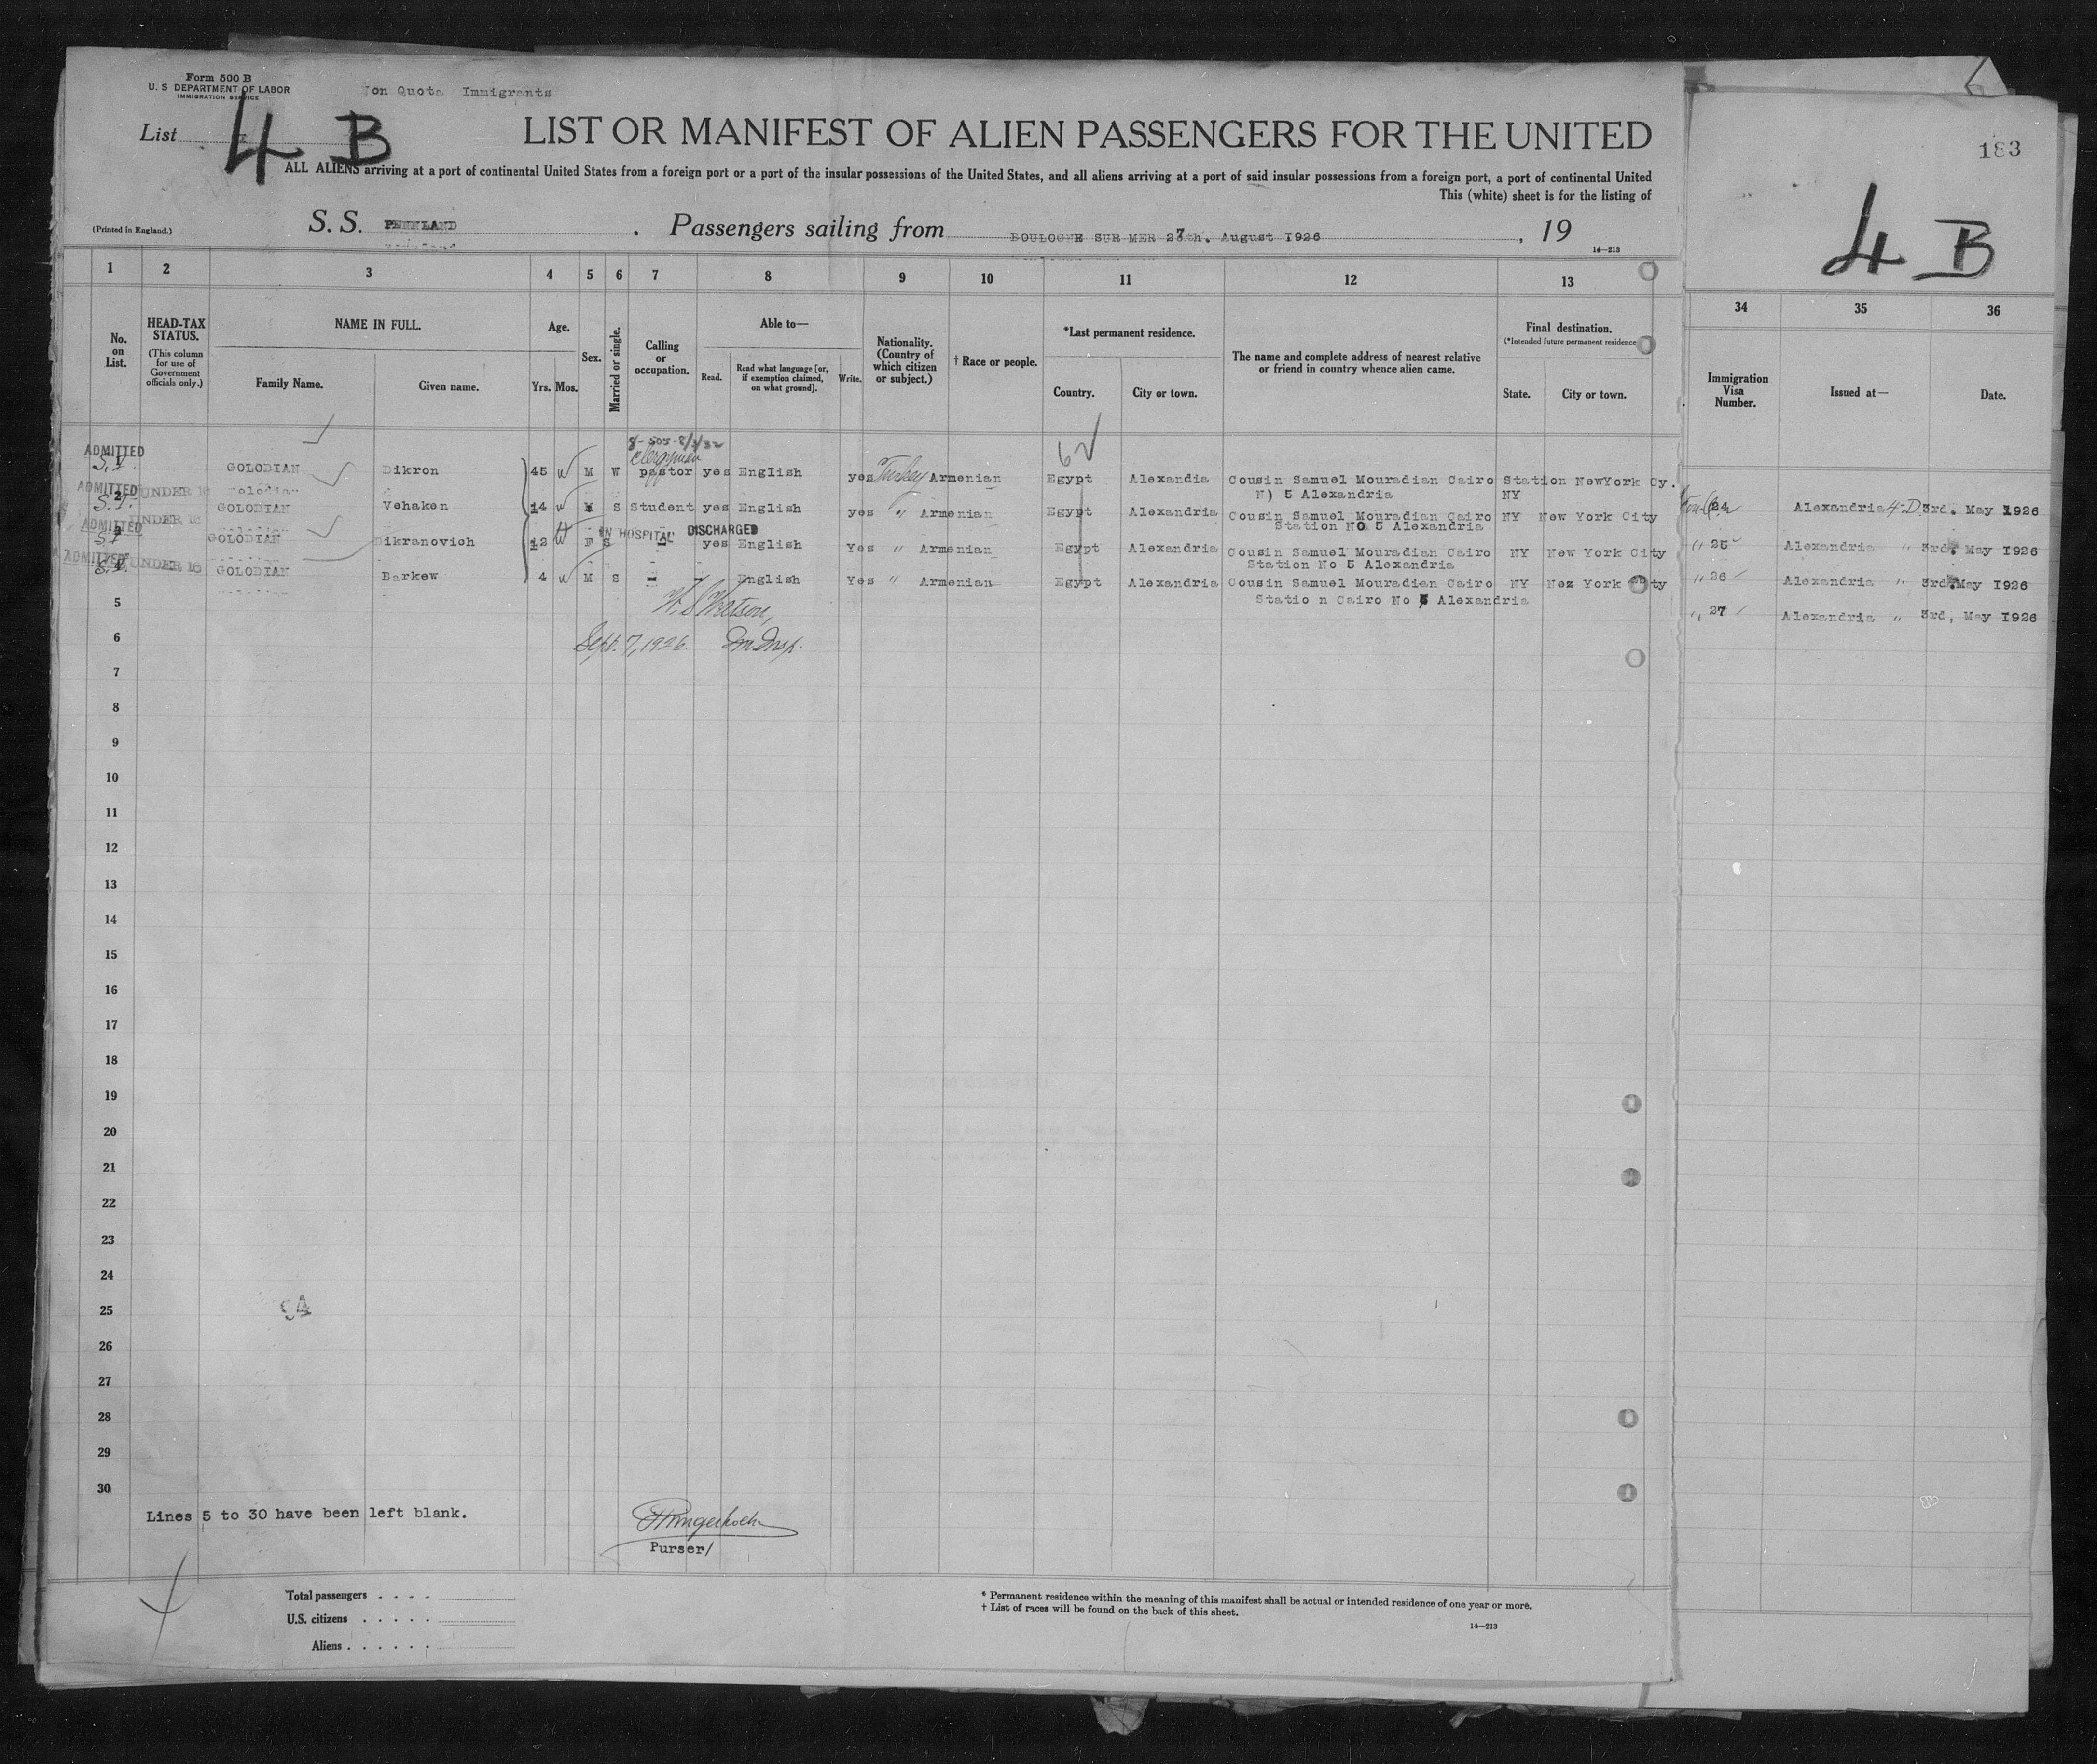 Form 500 B
U. S DEPARTMENT OF LABOR
IMMIGRATION SERVICE
on Quota Immigrants
183
List
4 B
LIST OR MANIFEST OF ALIEN PASSENGERS FOR THE UNITED
4 B
ALL ALIENS arriving at a port of continental United States from a foreign port or a port of the insular possessions of the United States, and all aliens arriving at a port of said insular possessions from a foreign port, a port of continental United
This (white) sheet is for the listing of
(Printed in England.)
S. S. PENNLAND . Passengers sailing from BOULOGNE SUR MER 27th. August 1926 , 19
14—213
1 2 3 4 5 6 7 8 9 10 11 12 13 34 35 36
No. on List.
HEAD-TAX STATUS.
(This column for use of Government officials only.)
NAME IN FULL.
Family Name. Given name.
Age.
Yrs. Mos.
Sex.
Married or single.
Calling or occupation.
Able to—
Read. Read what language [or, if exemption claimed, on what ground]. Write.
Nationality. (Country of which citizen or subject.)
† Race or people.
*Last permanent residence.
Country. City or town.
The name and complete address of nearest relative or friend in country whence alien came.
Final destination.
(*Intended future permanent residence
State. City or town.
Immigration Visa Number.
Issued at—
Date.
62
clergyman
ADMITTED S.I. GOLODIAN Dikron 45 W M W pastor yes English yes Turkey Armenian Egypt Alexandia Cousin Samuel Mouradian Cairo Station NewYork Cy.
N) 5 Alexandria NY
ADMITTED 2 S.I. UNDER 16 GOLODIAN Vehaken 14 W M S Student yes English yes " Armenian Egypt Alexandria Cousin Samuel Mouradian Cairo NY New York City 24 Alexandria 4-D 3rd. May 1926
Station NO 5 Alexandria
IN HOSPITAL DISCHARGED
ADMITTED S.I. UNDER 16 GOLODIAN Dikranovich 12 W F S - yes English Yes " Armenian Egypt Alexandria Cousin Samuel Mouradian Cairo NY New York City " 25 Alexandria " 3rd. May 1926
Station No 5 Alexandria
ADMITTED S.I. UNDER 16 GOLODIAN Barkew 4 W M S - English Yes " Armenian Egypt Alexandria Cousin Samuel Mouradian Cairo NY Nez York City " 26 Alexandria " 3rd May 1926
Statio n Cairo No 5 Alexandria
" 27 Alexandria " 3rd, May 1926
5
Watson,
6
Sept. 7, 1926. Im. Insp.
7
8
9
10
11
12
13
14
15
16
17
18
19
20
21
22
23
24
25
26
27
28
29
30
Lines 5 to 30 have been left blank.
Purser/
Total passengers . . . .
U.S. citizens . . . . .
Aliens . . . . . .
* Permanent residence within the meaning of this manifest shall be actual or intended residence of one year or more.
† List of races will be found on the back of this sheet.
14—213